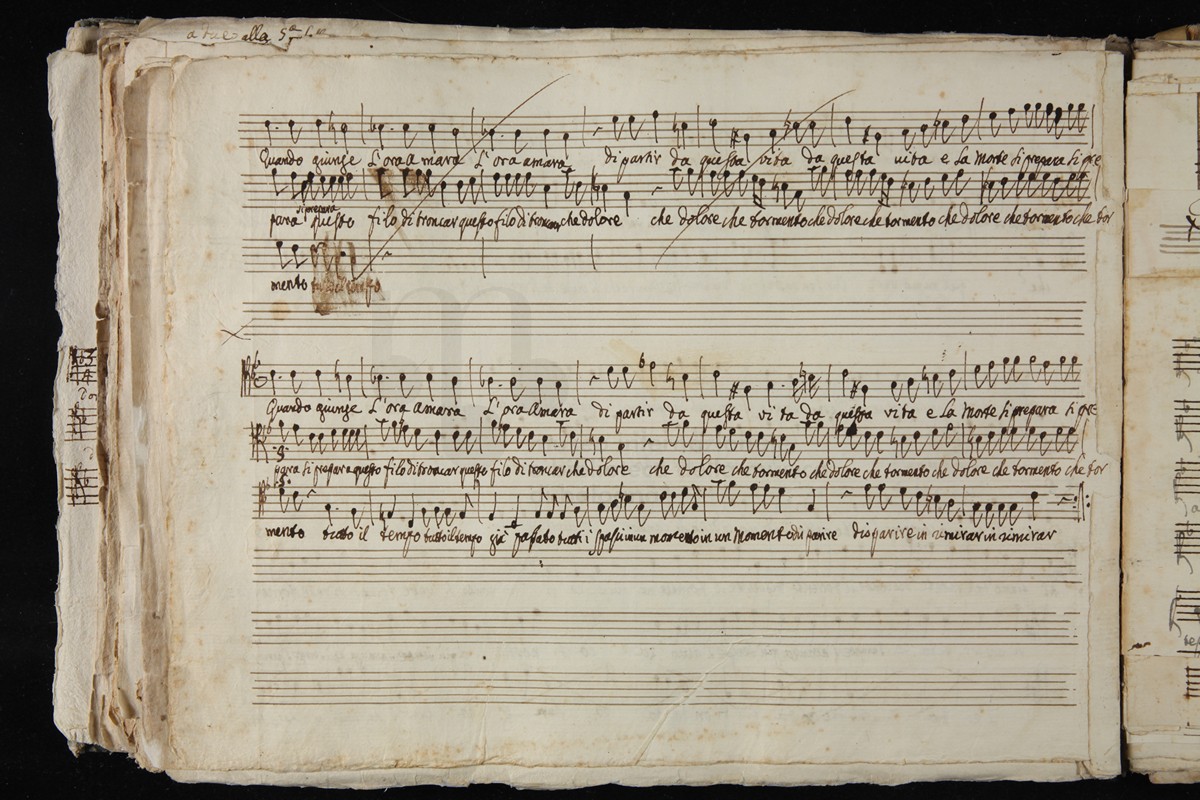 a due alla 5a
Quando giunge L'ora amara L'ora amara di partir da questa vita da questa vita e La Morte si prepara si pre
para si prepara questo filo di troncar questo filo di troncar che dolore che dolore che tormento che dolore che tormento che dolore che tormento che tor
mento
Quando giunge L'ora Amara L'ora Amara di partir da questa vita da questa vita e La Morte si prepara si pre
para si prepara questo filo di troncar questo filo di troncar che dolore che dolore che tormento che dolore che tormento che dolore che tormento che tor
mento tutto il tempo tutto il tempo già passato tutti i spassi in un momento in un Momento disparire in rimirar in rimirar